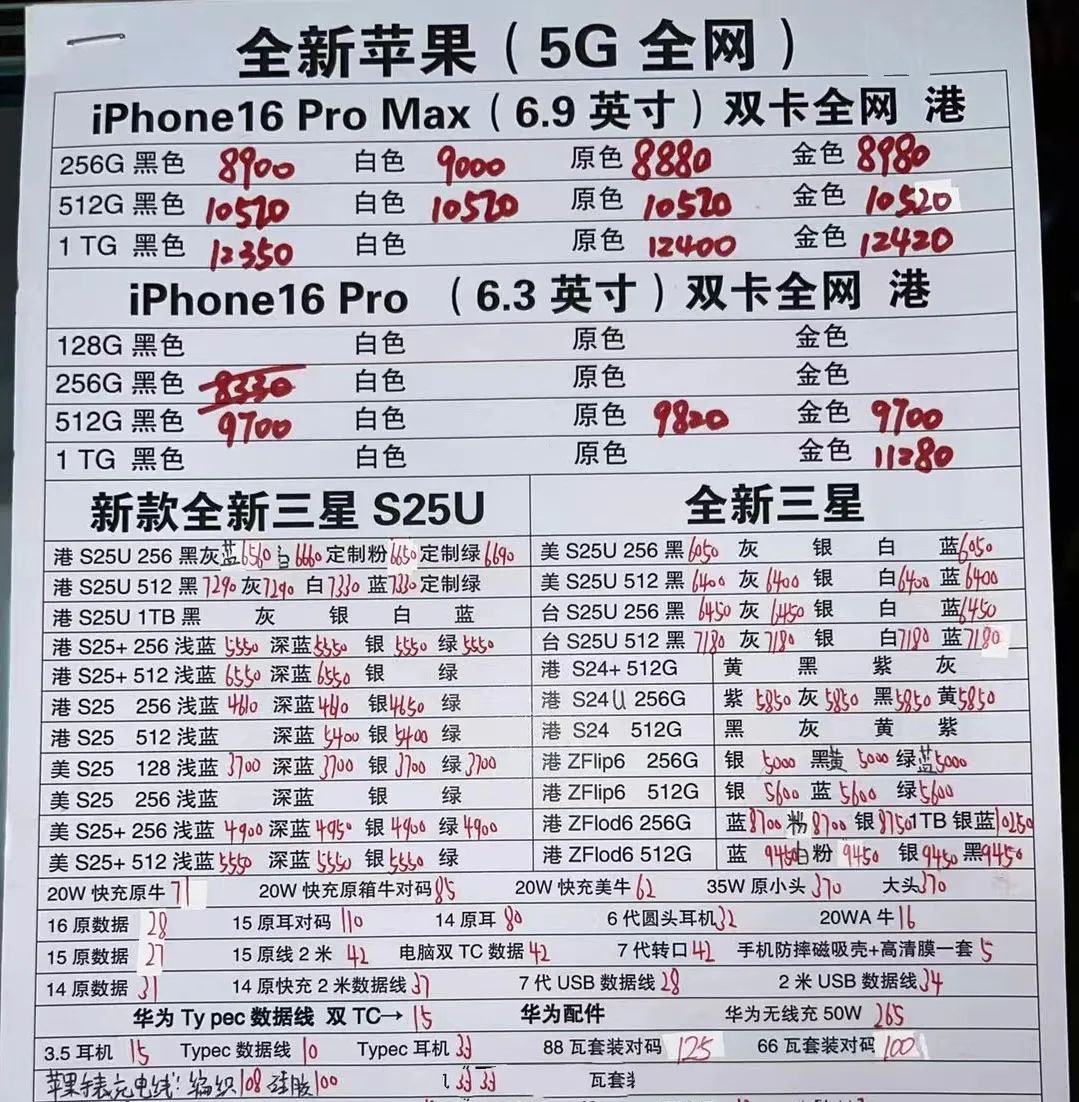 全新苹果（5G 全网）
iPhone16 Pro Max（6.9 英寸）双卡全网 港
256G 黑色 8900 白色 9000 原色 8880 金色 8980
512G 黑色 10520 白色 10520 原色 10520 金色 10520
1 TG 黑色 12350 白色 原色 12400 金色 12420
iPhone16 Pro （6.3 英寸）双卡全网 港
128G 黑色 白色 原色 金色
256G 黑色 8330 白色 原色 金色
512G 黑色 9700 白色 原色 9820 金色 9700
1 TG 黑色 白色 原色 金色 11280
新款全新三星 S25U
港 S25U 256 黑灰蓝6560 白 6660 定制粉 6650 定制绿 6690
港 S25U 512 黑 7290 灰 7290 白 7330 蓝 7330 定制绿
港 S25U 1TB 黑 灰 银 白 蓝
港 S25+ 256 浅蓝 5550 深蓝 5550 银 5550 绿 5550
港 S25+ 512 浅蓝 6550 深蓝 6550 银 绿
港 S25 256 浅蓝 4610 深蓝 4610 银 4650 绿
港 S25 512 浅蓝 深蓝 5400 银 5400 绿
美 S25 128 浅蓝 3700 深蓝 3700 银 3700 绿 3700
美 S25 256 浅蓝 深蓝 银 绿
美 S25+ 256 浅蓝 4900 深蓝 4950 银 4900 绿 4900
美 S25+ 512 浅蓝 5550 深蓝 5550 银 5550 绿
全新三星
美 S25U 256 黑 6050 灰 银 白 蓝 6050
美 S25U 512 黑 6400 灰 6400 银 白 6400 蓝 6400
台 S25U 256 黑 6450 灰 6450 银 白 蓝 6450
台 S25U 512 黑 7180 灰 7180 银 白 7180 蓝 7180
港 S24+ 512G 黄 黑 紫 灰
港 S24U 256G 紫 5850 灰 5850 黑 5850 黄 5850
港 S24 512G 黑 灰 黄 紫
港 ZFlip6 256G 银 5000 黑黄 5000 绿蓝 5000
港 ZFlip6 512G 银 5600 蓝 5600 绿 5600
港 ZFlod6 256G 蓝 8700 粉 8700 银 8750 1TB 银蓝 10250
港 ZFlod6 512G 蓝 9450 白粉 9450 银 9450 黑 9450
20W 快充原牛 71 20W 快充原箱牛对码 85 20W 快充美牛 62 35W 原小头 370 大头 370
16 原数据 28 15 原耳对码 110 14 原耳 80 6 代圆头耳机 32 20WA 牛 16
15 原数据 27 15 原线 2 米 42 电脑双 TC 数据 42 7 代转口 42 手机防摔磁吸壳+高清膜一套 5
14 原数据 31 14 原快充 2 米数据线 37 7 代 USB 数据线 28 2 米 USB 数据线 34
华为 Ty pec 数据线 双 TC→ 15 华为配件 华为无线充 50W 265
3.5 耳机 15 Typec 数据线 10 Typec 耳机 33 88 瓦套装对码 125 66 瓦套装对码 100
苹果手表充电线：编织 108 硅胶 100 33 瓦套装